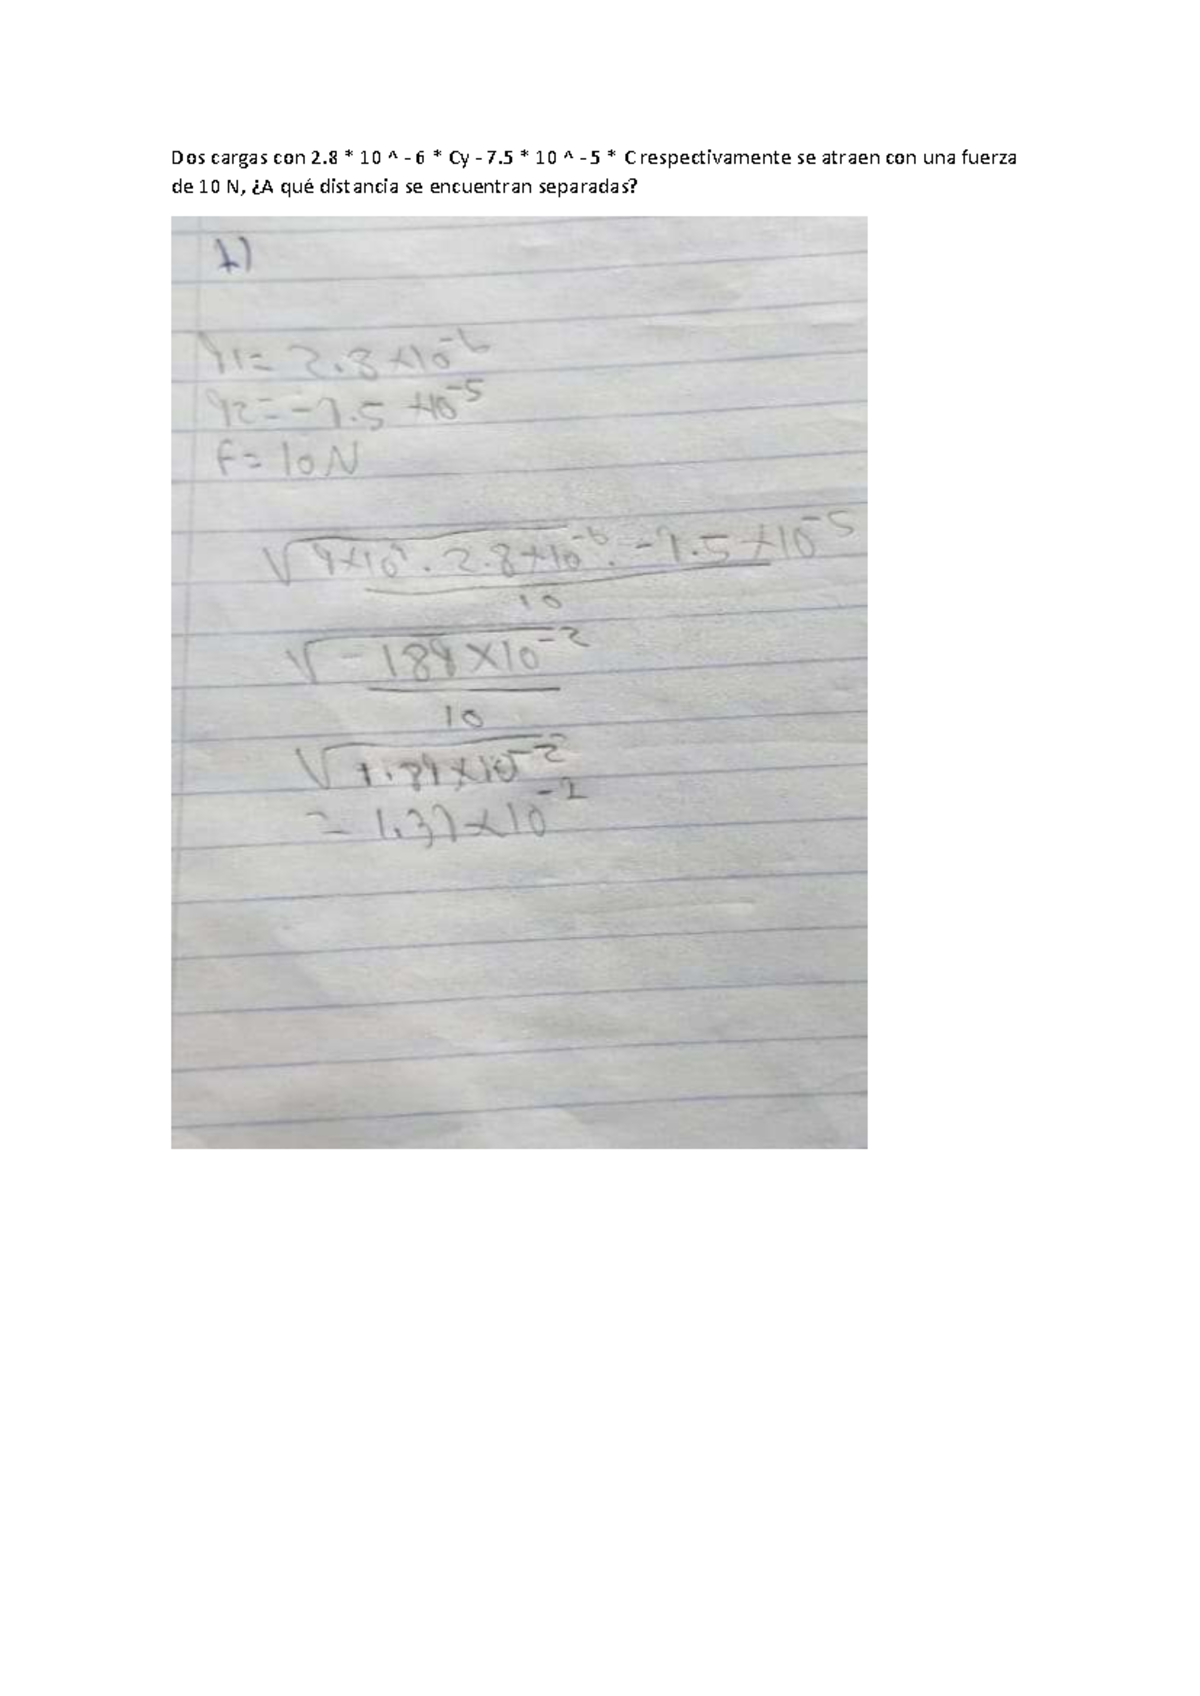 Dos cargas con 2.8 * 10 ^ - 6 * Cy - 7.5 * 10 ^ - 5 * C respectivamente se atraen con una fuerza
de 10 N, ¿A qué distancia se encuentran separadas?
1)
q1= 2.8 x10^-6
q2= -7.5 x10^-5
F= 10N
√9x10^9 . 2.8x10^-6 . -7.5 x10^-5
10
√-189 x10^-2
10
√1.89 x10^-2
= 1.37 x10^-2